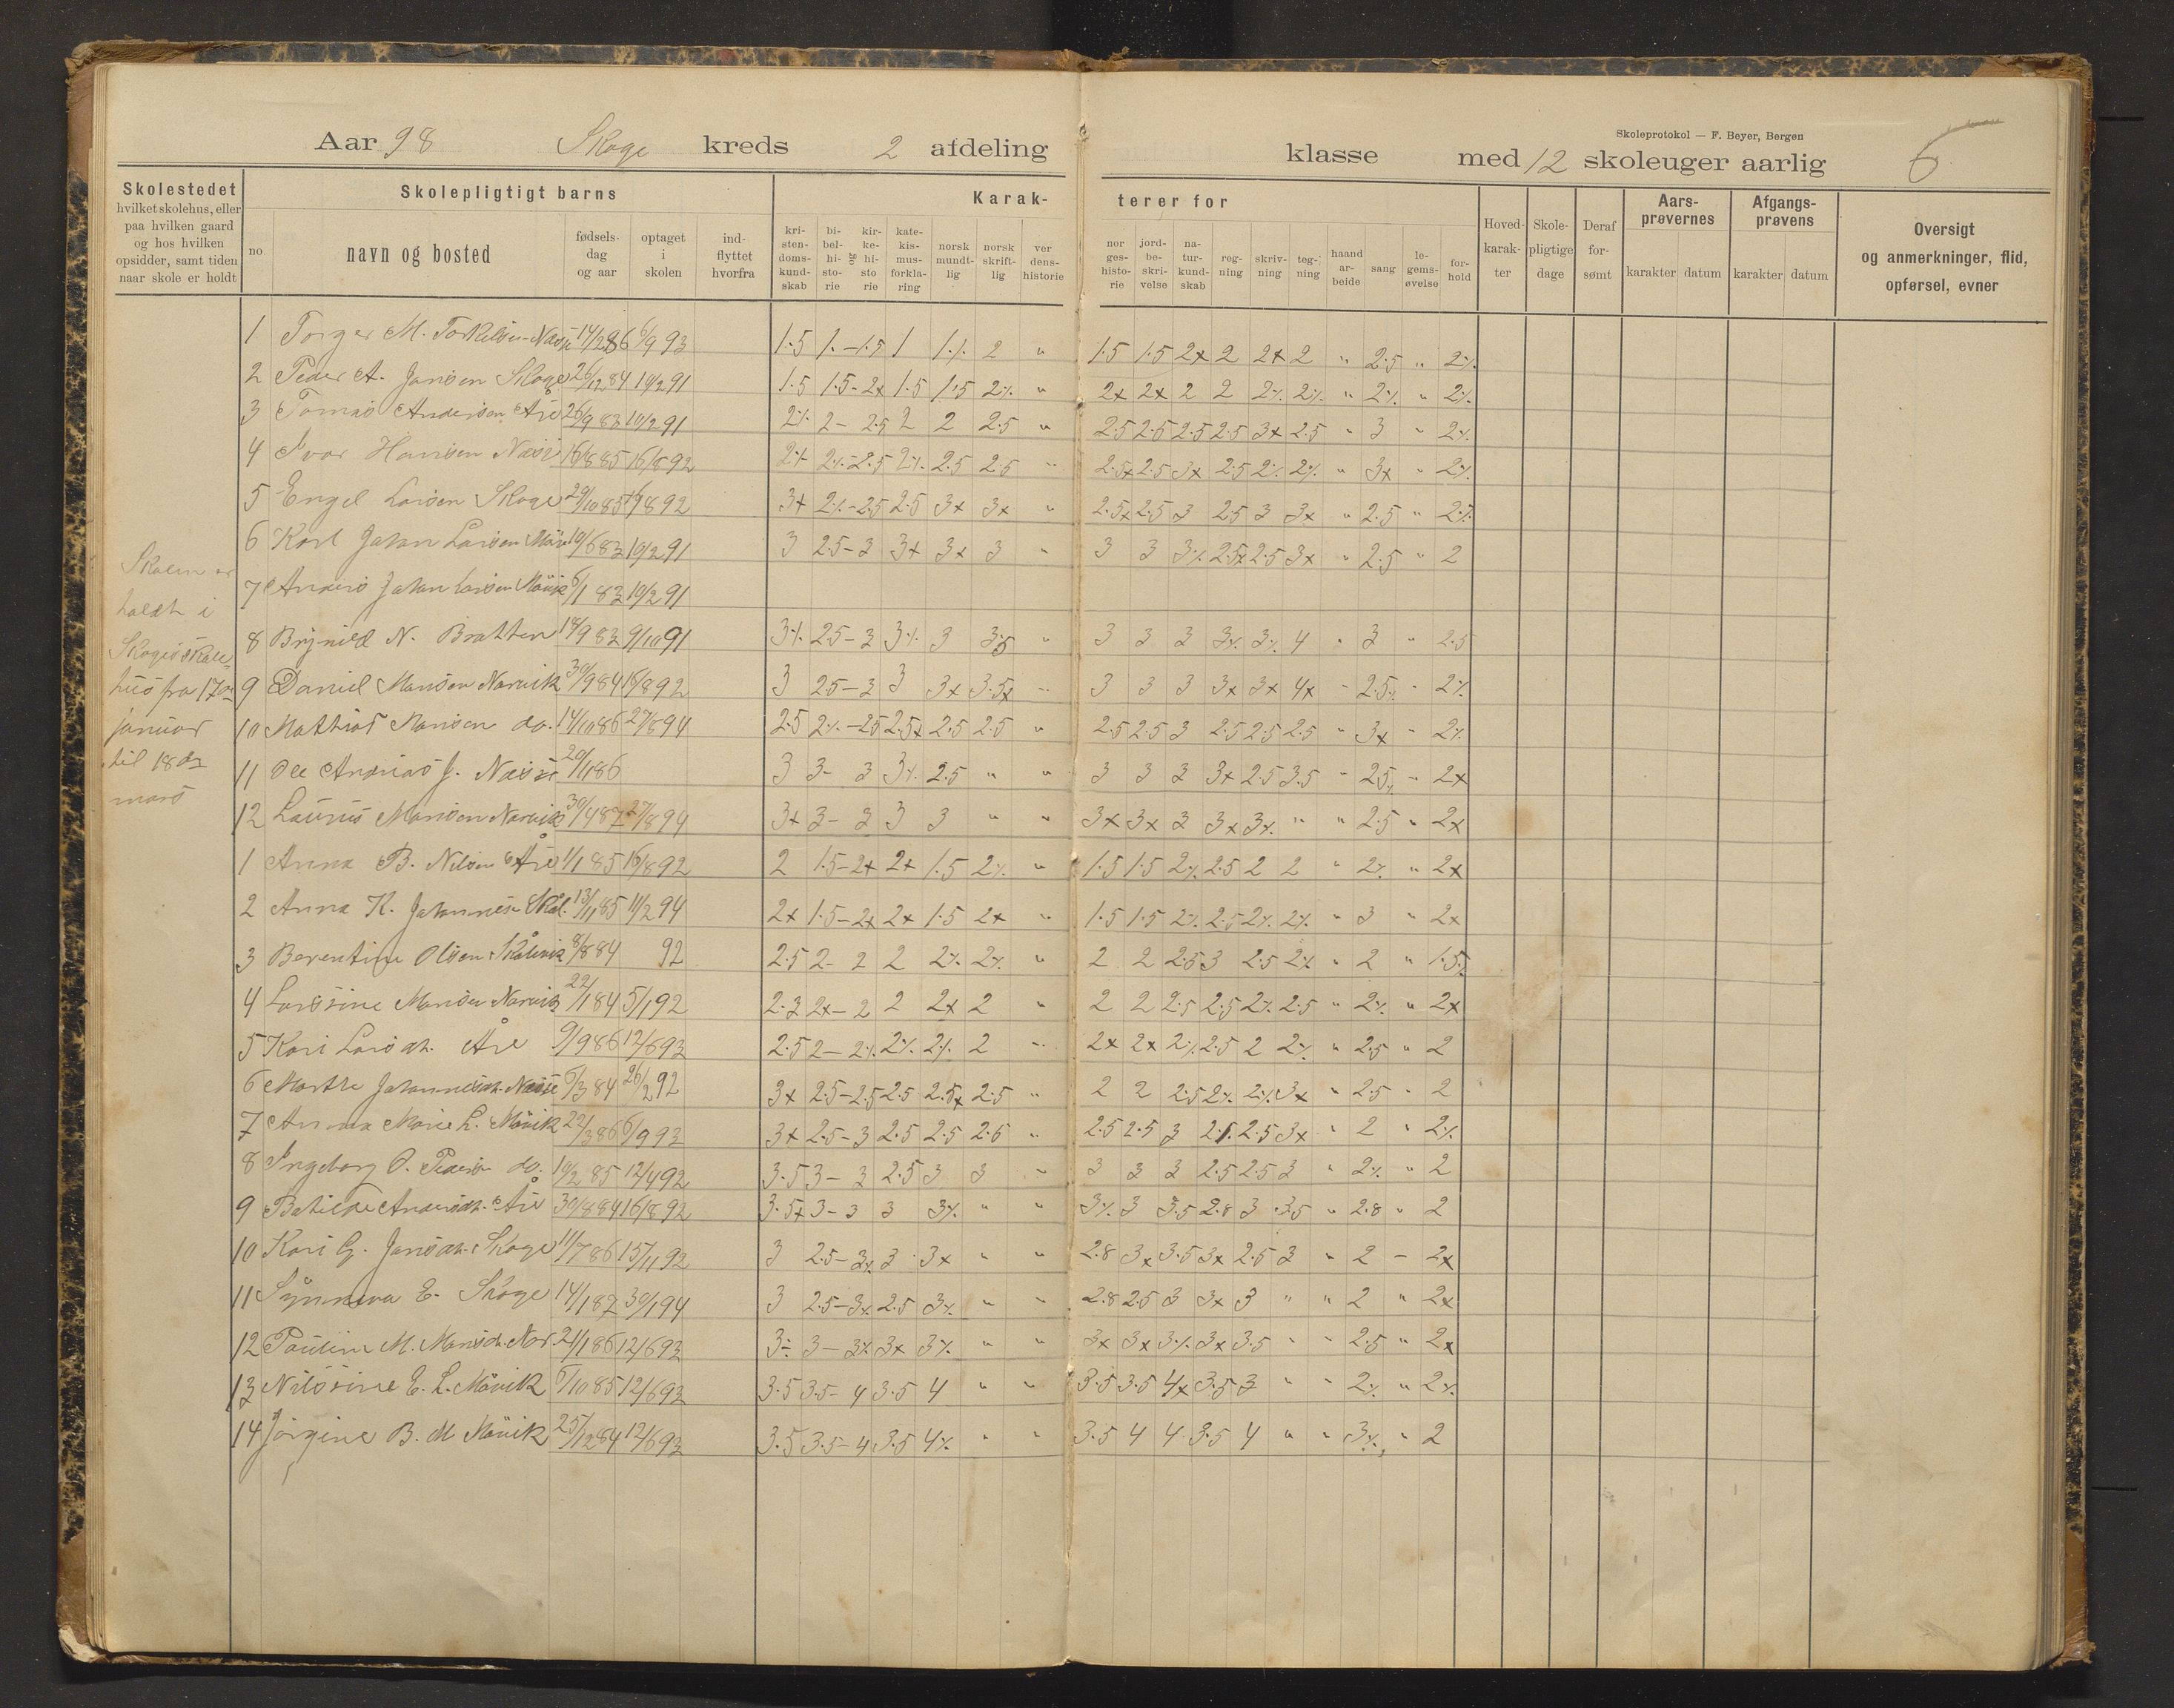 Skoleprotokol — F. Beyer, Bergen
Aar 98 Skoge kreds 2 afdeling klasse med 12 skoleuger aarlig 6
Skolestedet
hvilket skolehus, eller
paa hvilken gaard
og hos hvilken
opsidder, samt tiden
naar skole er holdt
Skolepligtigt barns
no.
navn og bosted
fødsels-
dag
og aar
optaget
i
skolen
ind-
flyttet
hvorfra
Karak-
terer for
kri-
sten-
doms-
kund-
skab
bi-
bel-
hi-
sto-
rie
og
kir-
ke-
hi-
sto
rie
kate-
kis-
mus-
forkla-
ring
norsk
mundt-
lig
norsk
skrift-
lig
ver
dens-
historie
nor
ges-
histo-
rie
jord-
be-
skri-
velse
na-
tur-
kund-
skab
reg-
ning
skriv-
ning
teg-
ning
haand
ar-
beide
sang
le-
gems-
øvelse
for-
hold
Hoved-
karak-
ter
Skole-
pligtige
dage
Deraf
for-
sømt
Aars-
prøvernes
karakter datum
Afgangs-
prøvens
karakter datum
Oversigt
og anmerkninger, flid,
opførsel, evner
Skolen er
holdt i
Skoges skole-
hus fra 17de
januar
til 18de
mars
1 Torger M. 14/2 86 6/9 93 1.5 1. - 1.5 1 1.% 2 " 1.5 1.5 2x 2 2x 2 " 2.5 " 2%
2 Peder A. Jansen Skoge 26/12 84 10/2 91 1.5 1.5 - 2x 1.5 1.5 2% " 2x 2x 2 2 2% 2% " 2% " 2%
3 Tomas Andersen Åre 26/9 83 10/2 91 2% 2 - 2.5 2 2 2.5 " 2.5 2.5 2.5 2.5 3x 2.5 " 3 " 2%
4 Ivar Hansen 16/8 85 16/8 92 2% 2% - 2.5 2% 2.5 2.5 " 2.5x 2.5 3x 2.5 2% 2% " 3x " 2%
5 Engel Larsen Skoge 29/10 85 16/8 92 3x 2% - 2.5 2.5 3x 3x " 2.5x 2.5 3 2.5 3 3x " 2.5 " 2%
6 Karl Johan Larsen 10/6 83 10/2 91 3 2.5 - 3 3x 3x 3 " 3 3 3% 2.5x 2.5 3x " 2.5 " 2
7 Anders Johan Larsen Møvik 6/1 83 10/2 91
8 N. Bratten 18/9 83 9/10 91 3% 2.5 - 3 3% 3 3.5 " 3 3 3 3% 3% 4 " 3 " 2.5
9 Daniel Monsen Narvik 30/9 84 16/8 92 3 2.5 - 3 3 3x 3.5x " 3 3 3 3x 3x 4x " 2.5% " 2%
10 Mathias Monsen do. 14/10 86 27/8 94 2.5 2% - 2.5 2.5x 2.5 2.5 " 2.5 2.5 3 2.5 2.5 2.5 " 3x " 2%
11 Ole Andreas J. 20/1 86 3 3 - 3 3% 2.5 " " 3 3 3 3x 2.5 3.5 " 2.5% " 2x
12 Laurits Monsen Narvik 30/4 87 27/8 94 3x 3 - 3 3 3 " " 3x 3x 3 3x 3% " " 2.5 " 2x
1 Anna B. Nilsen Åre 1/1 85 16/8 92 2 1.5 - 2x 2x 1.5 2% " 1.5 1.5 2% 2.5 2 2 " 2% " 2x
2 Anna K. 13/11 85 11/2 94 2x 1.5 - 2x 2x 1.5 2x " 1.5 1.5 2% 2.5 2% 2% " 3 " 2x
3 Berentine Olsen 8/8 84 92 2.5 2 - 2 2 2% 2% " 2 2 2.5 3 2.5 2% " 2 " 1.5%
4 Larssine Monsen Narvik 22/1 84 5/1 92 2.3 2x - 2 2 2x 2 " 2 2 2.5 2.5 2% 2.5 " 2% " 2x
5 Kari Larsdt. Åre 9/9 86 12/6 93 2.5 2 - 2% 2% 2% 2 " 2x 2x 2% 2.5 2 2% " 2.5 " 2
6 Marthe Johannesdt. 6/3 84 26/2 92 3x 2.5 - 2.5 2.5 2.5x 2.5 " 2 2 2.5 2% 2% 3x " 2.5 " 2
7 Anna Marie L. Møvik 22/3 86 6/9 93 3x 2.5 - 3 2.5 2.5 2.5 " 2.5 2.5 3 2% 2.5 3x " 2 " 2%
8 Ingeborg O. do. 10/2 85 12/4 92 3.5 3 - 3 2.5 3 3 " 3 3 3 2.5 2.5 3 " 2% " 2
9 Andersdt. Åre 30/8 84 16/8 92 3.5x 3 - 3 3 3% " " 3% 3 3.5 2.8 3 3.5 " 2.8 " 2
10 Kari G. Jansdt. Skoge 11/7 86 15/11 92 3 2.5 - 3% 3 3x " " 2.8 3x 3.5 3x 2.5 3 " 2 - 2x
11 Synneva E. Skoge 14/1 87 30/1 94 3 2.5 - 3x 2.5 3% " " 2.8 2.5 3 3x 3 " " 2 " 2x
12 Pauline M. Monsdt. Nar. 21/1 86 12/6 93 3% 3 - 3% 3x 3% " " 3x 3x 3% 3x 3.5 " " 2.5 " 2x
13 Nilssine E. L. Møvik 6/10 85 12/6 93 3.5 3.5 - 4 3.5 4 " " 3.5 3.5 4x 3.5 3 " " 2% " 2%
14 Jørgine B. M Møvik 25/12 84 12/6 93 3.5 3.5 - 4 3.5 4% " " 3.5 4 4 3.5 4 " " 3% " 2